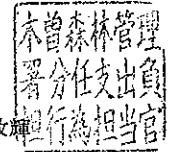 木曽森林管理
署分任支出負
輝
担行為担当官